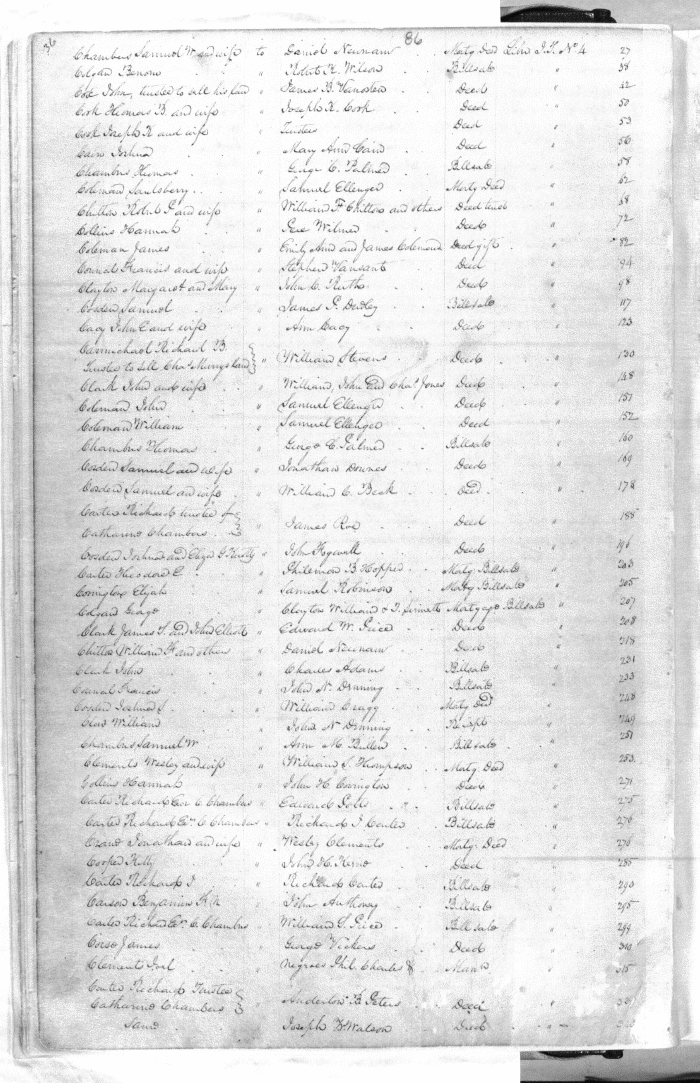 36
86
Chambers Samuel W and wife to Daniel Newnam Matg Deed Liber J.T. No 4 27
Benona " Robert R. Wilson Billsale 38
Cox John, trustee to sell his land " James B. Deed 42
Cook Thomas B. and wife " Joseph R. Cook Deed 50
Cook Joseph R and wife " Trustees Deed 53
Cain Joshua " Mary Ann Cain Deed 56
Chambers Thomas " George C. Palmer Billsale " 58
Coleman Saulsbery " Samuel Ellenger Matg Deed " 62
Chitton Robert P and wife " William F Chitton and others Deed trust " 68
Collins Hannah " Pere Wilmer Deed " 72
Coleman James " Emily Ann and James Coleman Deed gift " 82
Francis and wife " Stephen Vansant Deed " 94
Clayton Margaret and Mary " John C. Ruth Deed " 98
Cosden Samuel " James P. Dudley Billsale " 117
Cacy John C and wife " Ann Cacy Deed " 123
Carmichael Richard B
Trustee to sell Chas Murrys land } " William Stevens Deed " 130
Clark John and wife " William, John and Chas Jones Deed " 148
Coleman John " Samuel Ellenger Deed " 151
Coleman William " Samuel Ellenger Deed " 152
Chambers Thomas " George C. Palmer Billsale " 160
Cosden Samuel and wife " Jonathan Downes Deed " 169
Cosden Samuel and wife " William C. Beck Deed " 178
Carter Richard trustee of }
Catharine Chambers } " James Roe Deed " 188
Cosden Joshua and Eliza G " John Deed " 196
Carter Theodore E. " Philemon B Hopper Matg. Billsale " 203
Covington Elijah " Samuel Robinson Matg Billsale " 205
George " Clayton William & J. Matgage Billsale " 207
Clark James T. and John Elliott " Edward W. Price Deed " 208
Chitton William F and others " Daniel Newnam Deed " 218
Clark John " Charles Adams Billsale " 231
Francis " John N. Billsale " 233
Cosden Joshua S. " William Cragg Matg Deed " 248
Crow William " John N Receipt " 249
Chambers Samuel W " Ann M. Bullen Billsale " 251
Clements Wesley and wife " William S. Thompson Matg. Deed " 253
Collins Hannah " John H. Covington Deed " 271
Carter Richard Exr C Chambers " Edward Billsale " 275
Carter Richard Exr C Chambers " Richard J Carter Billsale " 276
Jonathan and wife " Wesley Clements Matg. Deed " 276
Cooper Kitty " John H. Deed " 285
Carter Richard J " Richard Carter Billsale " 293
Carson Benjamin " John Anthony Billsale " 295
Carter Richard Exr C. Chambers " William S. Price Bill sale " 299
Corse James " George Vickers Deed " 310
Clements Joel " Negroes Phil Charles & Manu " 315
Carter Richard Trustee }
Catharine Chambers } " B Peters Deed "
Same " Joseph Watson Deed "